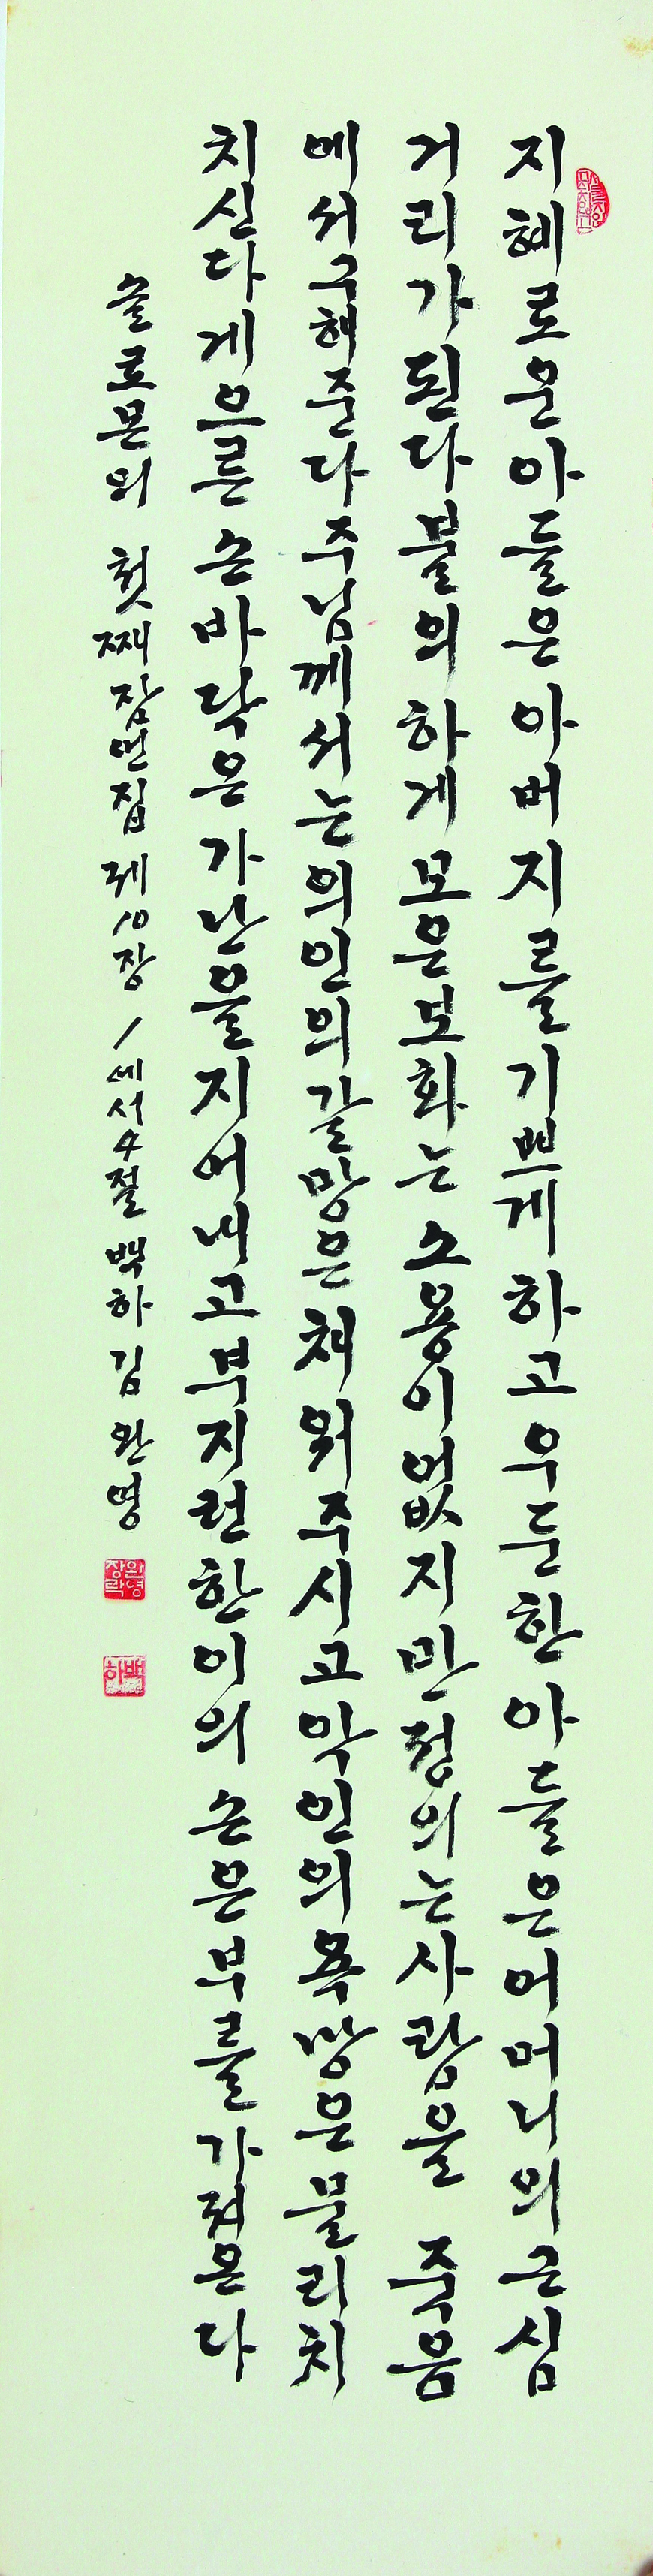 지혜로운아들은아버지를기쁘게하고우둔한아들은어머니의근심
거리가된다불의하게모은보화는소용이없지만정의는사람을 죽음
에서구해준다주님께서는의인의갈망은채워주시고악인의욕망은물리치
치신다게으른손바닥은가난을지어내고부지런한이의손은부를가져온다
솔로몬의 첫째 잠언집 제10장 1에서4절 백하 김완영
완영장락
백하